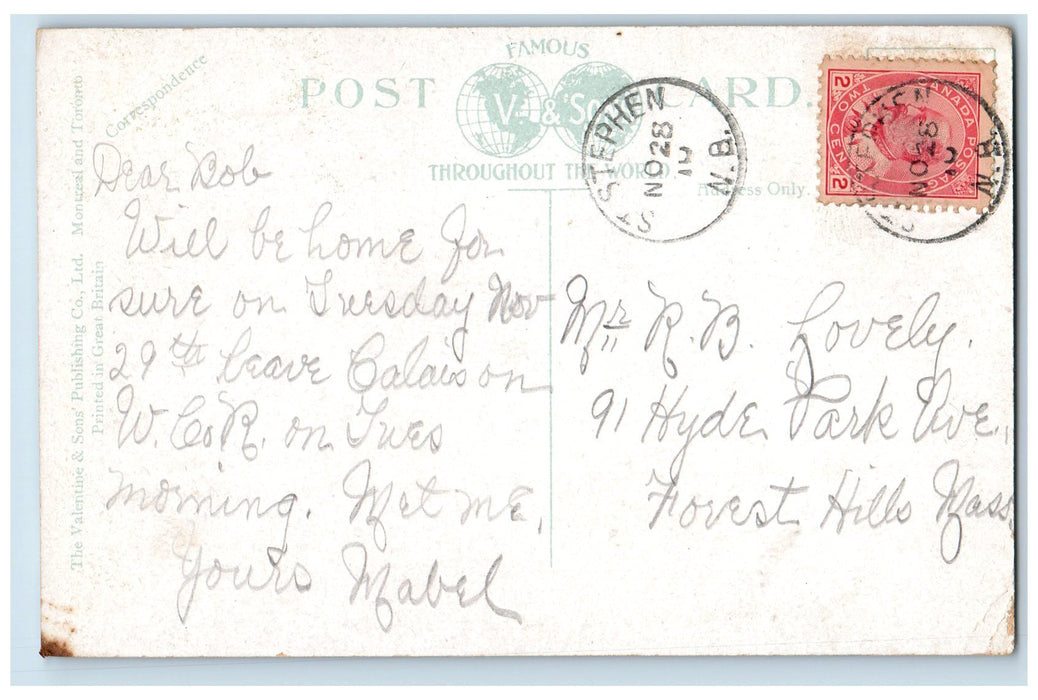 FAMOUS
POST CARD.
V. & Sons
THROUGHOUT THE WORLD.
Correspondence
Address Only.
The Valentine & Sons' Publishing Co., Ltd. Montreal and Toronto
Printed in Great Britain
ST STEPHEN
NO 28
10
N.B.
CANADA POSTAGE
2 TWO CENTS 2
ST STEPHEN
NO 28
10
N.B.
Dear Bob
Will be home for
sure on Tuesday Nov
29th leave Calais on
W. Co R. on Tues
morning. Met me.
Yours Mabel
Mr R. B. Lovely.
91 Hyde Park Ave.
Forest Hills Mass.